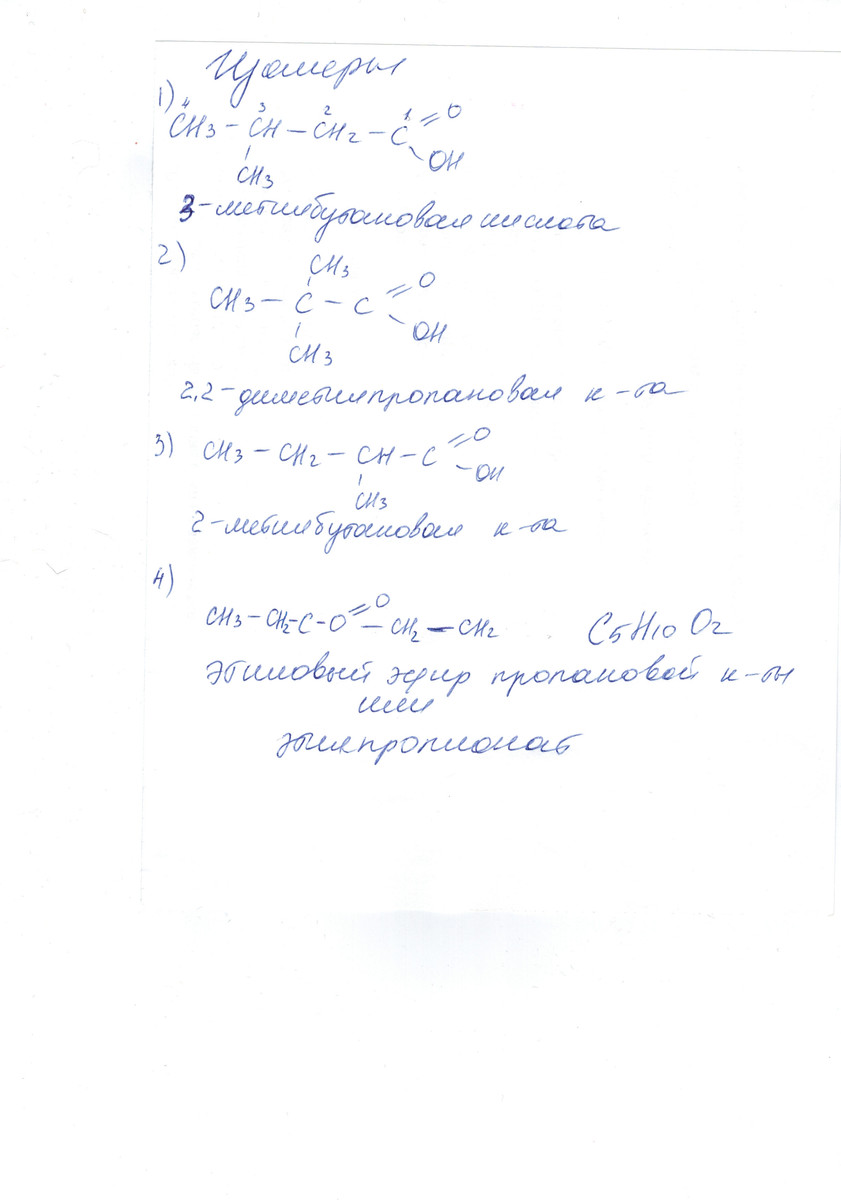 Изомеры
1)
4 3 2 1
CH3 – CH – CH2 – C = O
OH
CH3
3-метилбутановая кислота
2)
CH3
CH3 – C – C = O
OH
CH3
2,2-диметилпропановая к-та
3) CH3 – CH2 – CH – C = O
OH
CH3
2-метилбутановая к-та
4)
CH3 – CH2 – C – O = O – CH2 – CH2 C5H10O2
этиловый эфир пропановой к-ты
или
этилпропионат